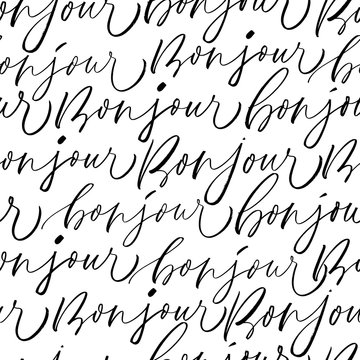 onjour Bonjour b
ur Bonjour bonjour
onjour Bonjour B
r bonjour bonjou
onjour bonjour B
ur Bonjour Bonjou
bonjour b